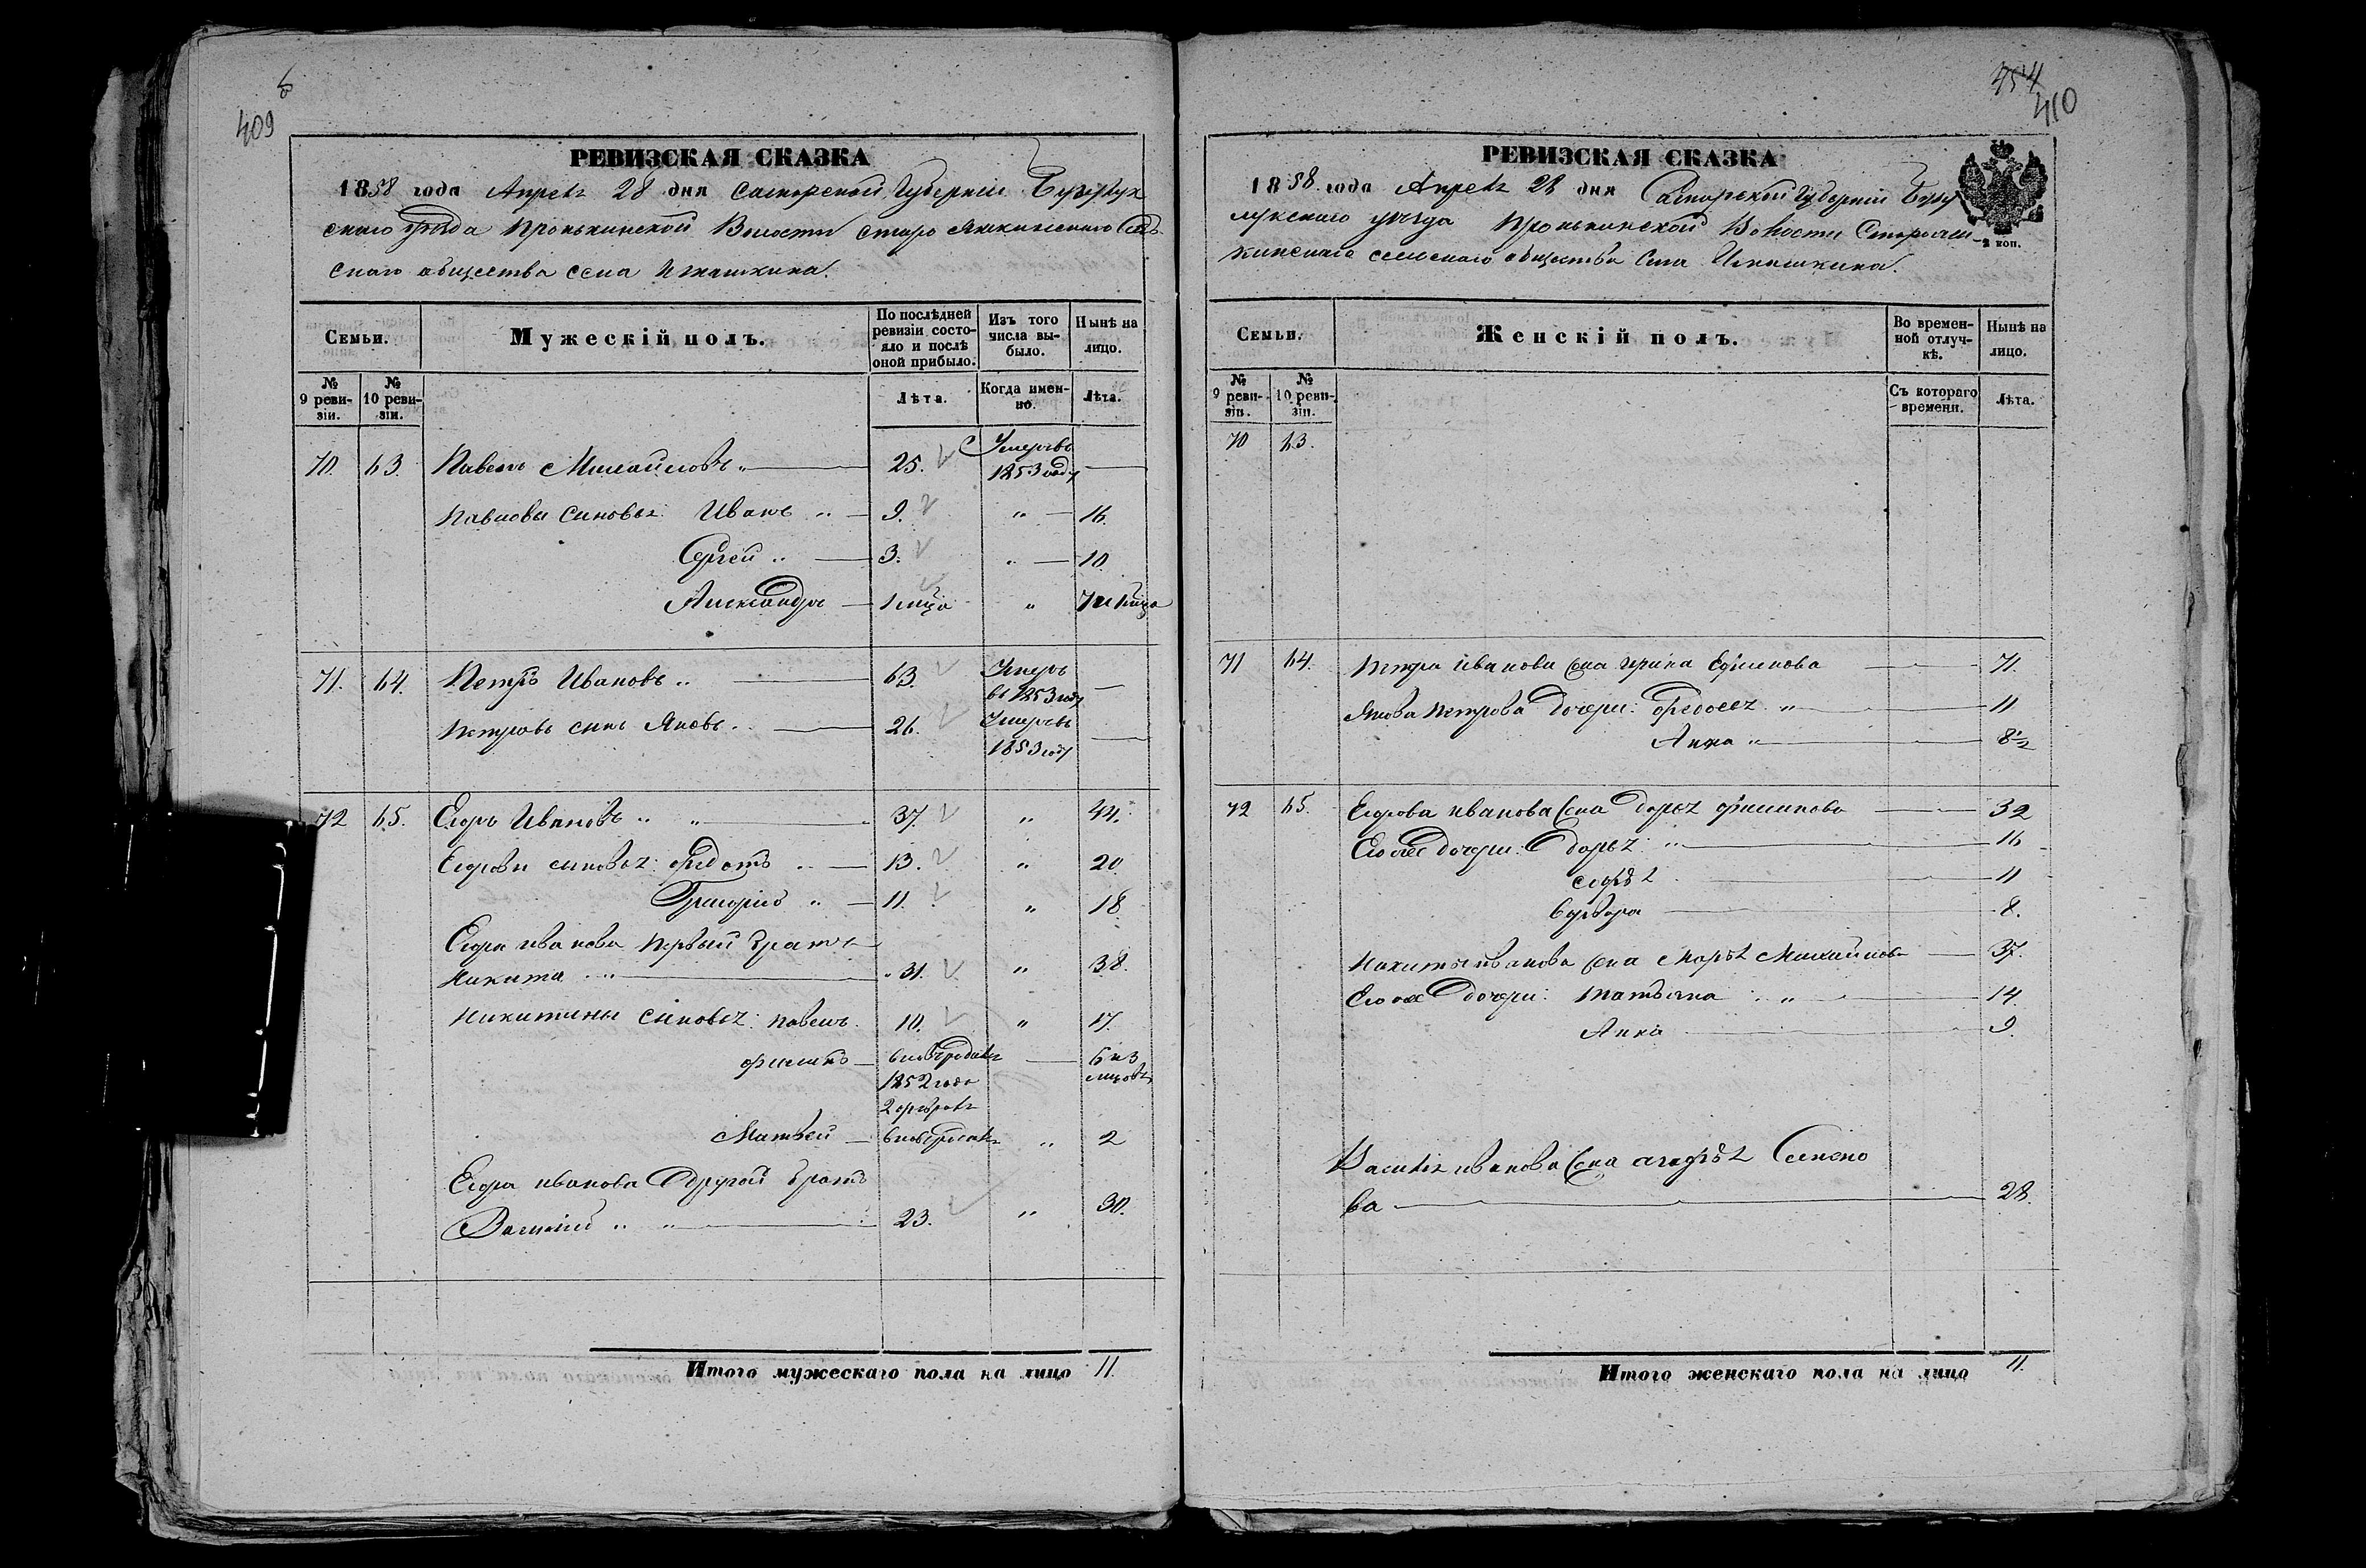 409
РЕВИЗСКАЯ СКАЗКА
1858 года Апреля 28 дня Самарской Губерніи Бузулук
скаго уезда Пронькинской Волости старо Яшкинскаго Сель
скаго общества села Игнашкина.
Семьи.
Мужескій полъ.
По послѣдней ревизіи состояло и послѣ оной прибыло.
Изъ того числа выбыло.
Нынѣ на лицо.
№ 9 ревизіи.
№ 10 ревизіи.
Лѣта.
Когда именно.
Лѣта.
70. 63. Павелъ Михайловъ 25. Умеръ въ 1853 году
Павловы сыновья: Иванъ 9. 16.
Сергей 3. 10.
Александръ 7 и
71. 64. Петръ Ивановъ 63. Умеръ въ 1853 году
Петровъ сынъ Яковъ 26. Умеръ въ 1853 году
72 65. Егоръ Ивановъ 37. 44.
Егоровы сыновья: Федотъ 13. 20
Григорій 11. 18.
Егора иванова первый братъ
Никита 31. 38.
Никитины сыновья: павелъ 10. 17.
филипъ вновь рожденъ 6 и 3
1852 года
2 февраля
Матвей вновь 2
Егора иванова другой братъ
Василій 23. 30.
Итого мужескаго пола на лицо 11.
454
410
РЕВИЗСКАЯ СКАЗКА
1858 года Апреля 28 дня Самарской Губерніи Бузу
лукскаго уезда Пронькинской Волости Старояш
кинскаго сельскаго общества села Игнашкина.
2 коп.
Семьи.
Женскій полъ.
Во временной отлучкѣ.
Нынѣ на лицо.
№ 9 ревизіи.
№ 10 ревизіи.
Съ котораго времени.
Лѣта.
70 63.
71 64. Петра иванова жена ирина Ефимова 71.
Якова петрова дочери: Федосья 11
Анна 8½
72 65. Егорова иванова жена дарья филипова 32
Его же дочери: дарья 16
софья 11
варвара 8.
Никиты иванова жена марья Михайлова 37.
Его же дочери: татьяна 14.
Анна 9.
Василья иванова жена агафья Семено
ва 28.
Итого женскаго пола на лицо 11.